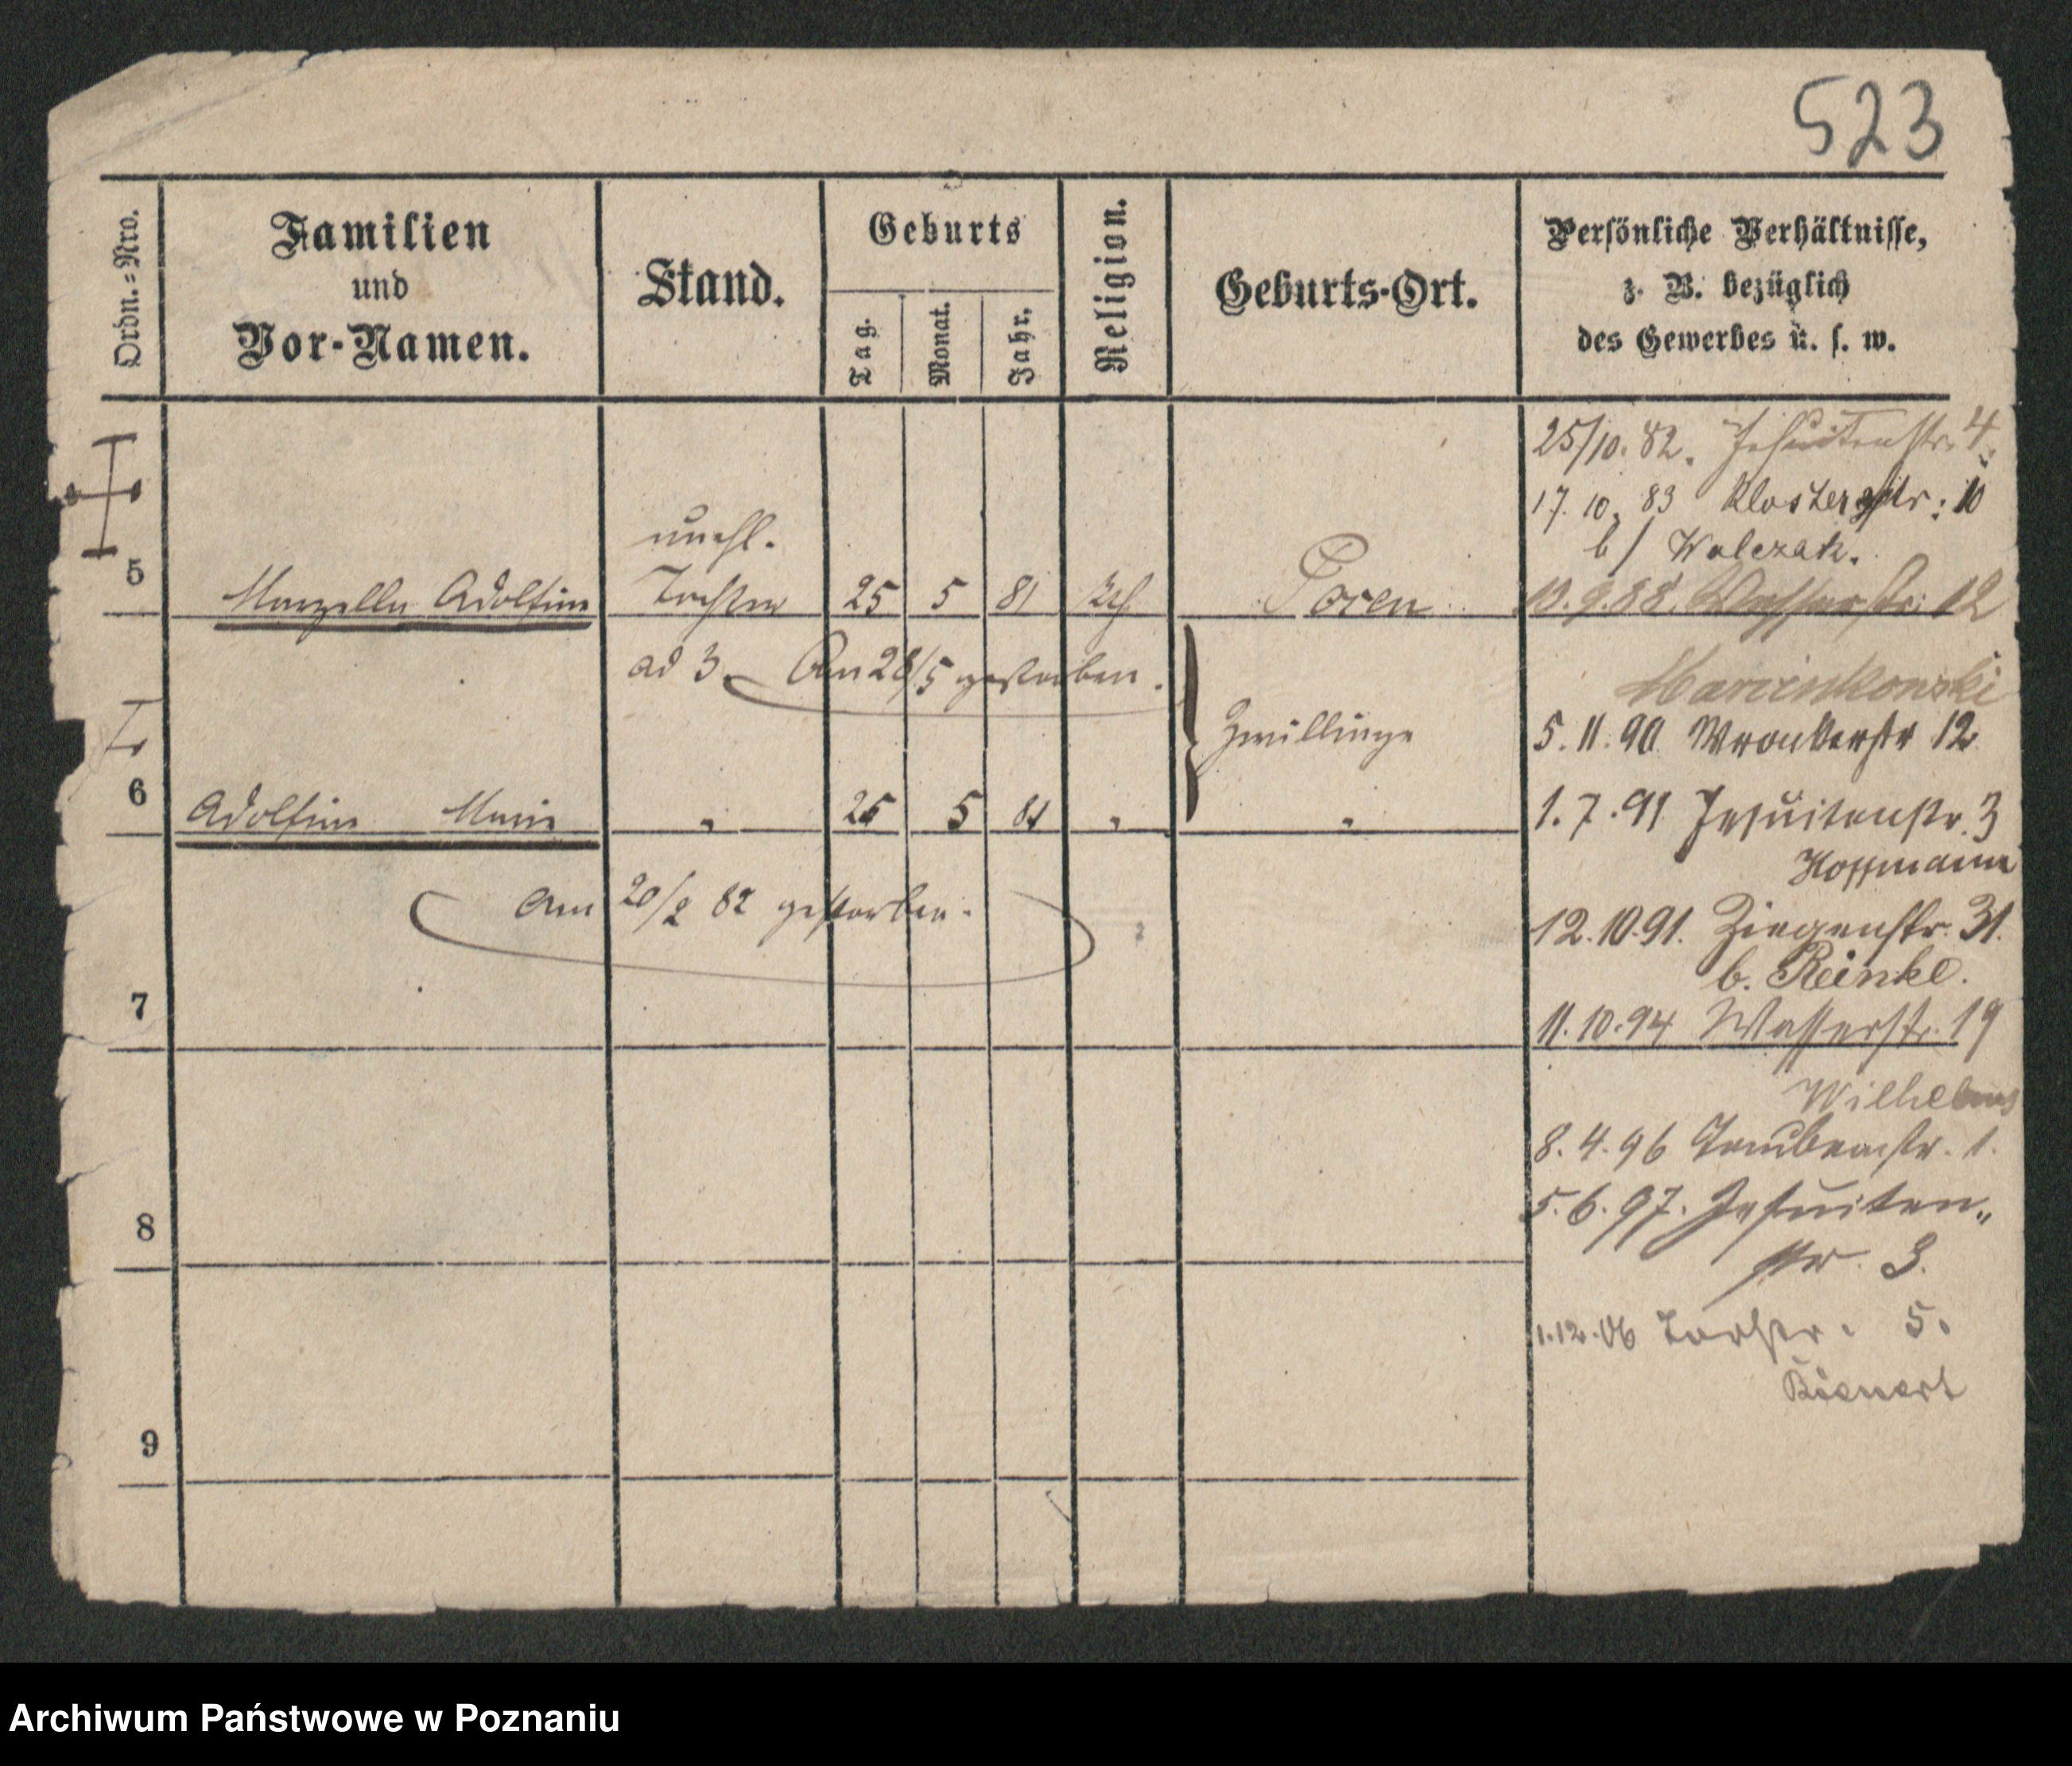 523
Ordn.=Nro.
Familien
und
Vor-Namen.
Stand.
Geburts
Tag.
Monat.
Jahr.
Religion.
Geburts-Ort.
Persönliche Verhältnisse,
z. B. bezüglich
des Gewerbes u. s. w.
25/10. 82. Jesuitenstr. 4.
17. 10. 83 Klosterstr: 10
b/ Walczak.
unehl.
5 Marzella Adolfine Tochter 25 5 81 kth Posen 10.9.88. Wasserstr: 12
ad 3. Am 28/5 gestorben.
Marcinkowski
Zwillinge
5. 11. 90 Wronkerstr 12
6 Adolfine Marie " 25 5 81 " " 1. 7. 91 Jesuitenstr. 3
Hoffmann
Am 20/2 82 gestorben.
12.10.91. Ziegenstr. 31.
b. Reinke.
7 11.10.94 Wasserstr. 19
Wilhelms
8. 4. 96 Taubenstr. 1.
5. 6. 97. Jesuiten„
8 str. 3.
1.12.06 Torstr. 5.
Bienert
9
Archiwum Państwowe w Poznaniu